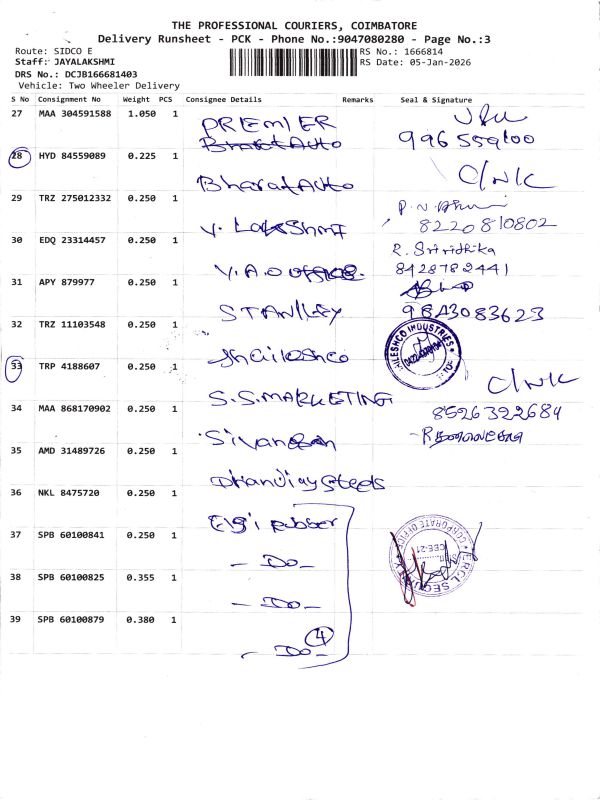 THE PROFESSIONAL COURIERS, COIMBATORE
Delivery Runsheet - PCK - Phone No.:9047080280 - Page No.:3
Route: SIDCO E
RS No.: 1666814
Staff: JAYALAKSHMI
RS Date: 05-Jan-2026
DRS No.: DCJB166681403
Vehicle: Two Wheeler Delivery
S No Consignment No Weight PCS Consignee Details Remarks Seal & Signature
27 MAA 304591588 1.050 1 PREMIER
Bharat Auto
28 HYD 84559089 0.225 1 C/NK
Bharat Auto
29 TRZ 275012332 0.250 1
V. Lakshmi 8220810802
30 EDQ 23314457 0.250 1 R. Srividhika
V.A.O office 8428782441
31 APY 879977 0.250 1
STANLLEY 9843083623
32 TRZ 11103548 0.250 1
Shaileshco
33 TRP 4188607 0.250 1 C/NK
S.S.MARKETING
34 MAA 868170902 0.250 1 8526322684
35 AMD 31489726 0.250 1
Dhanvijay steels
36 NKL 8475720 0.250 1
Elgi rubber
37 SPB 60100841 0.250 1
- Do -
38 SPB 60100825 0.355 1
- Do -
39 SPB 60100879 0.380 1
4
- Do -